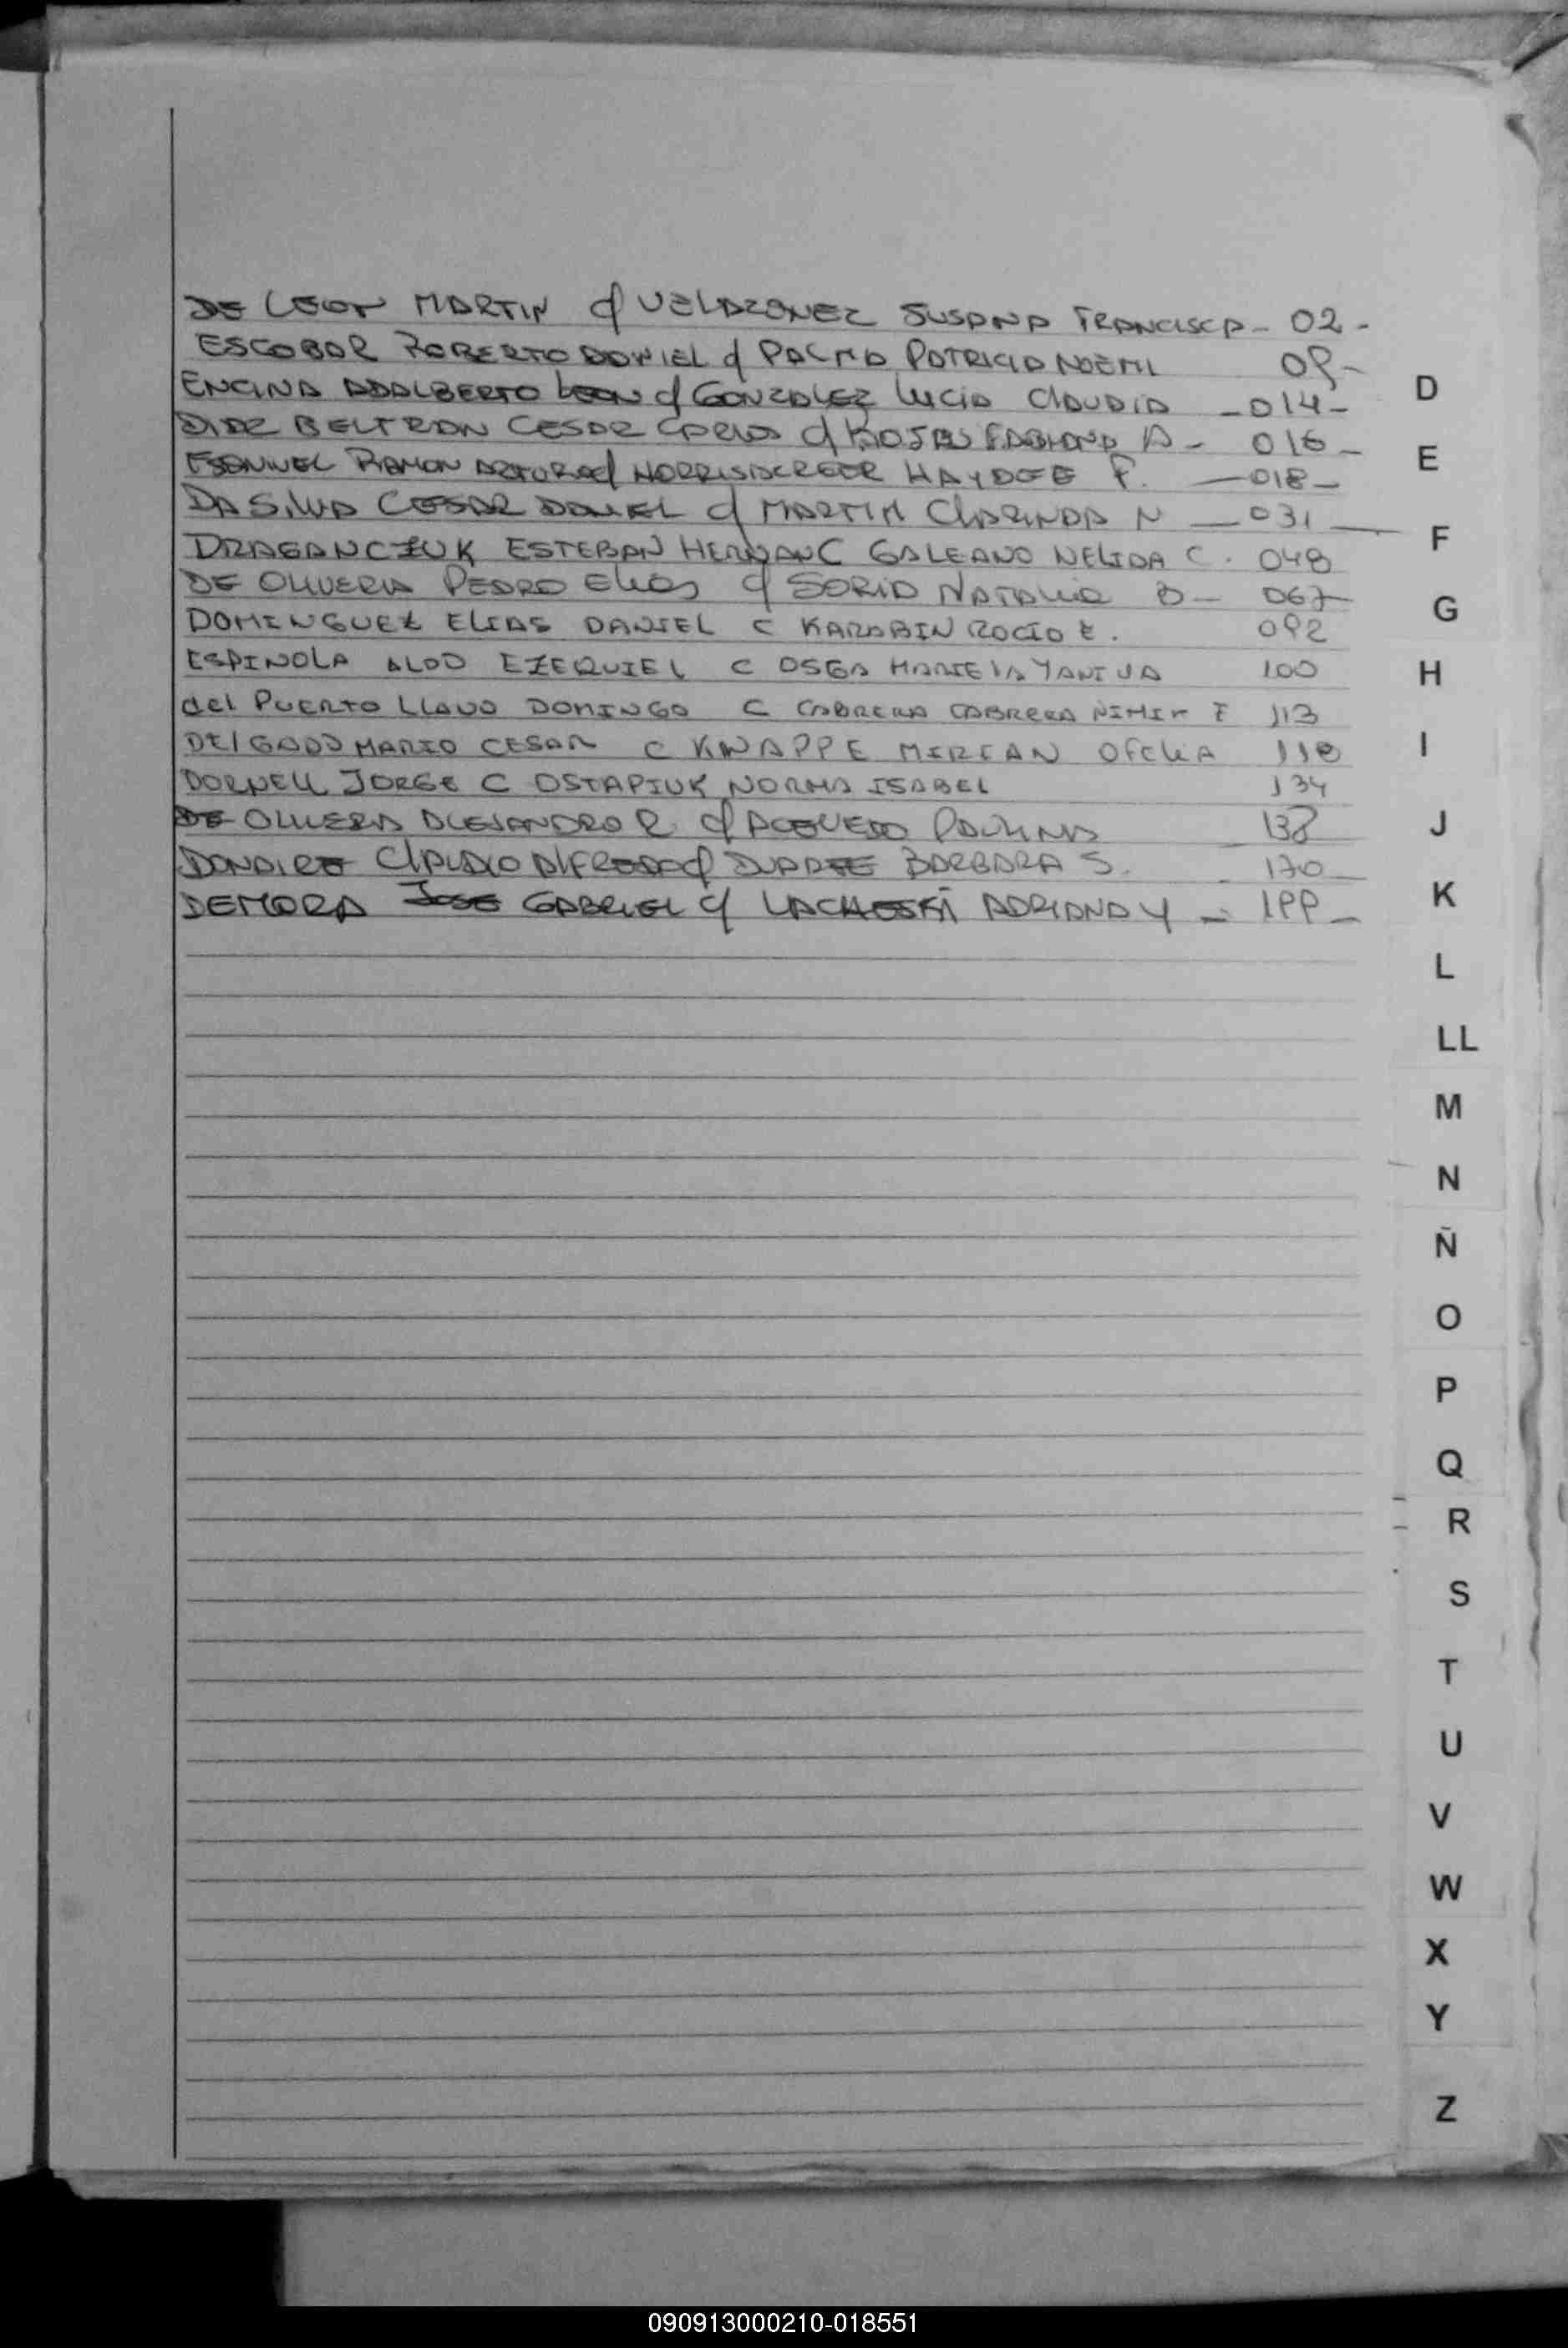 DE LEON MARTIN c/ VELAZQUEZ SUSANA FRANCISCA - 02 -
ESCOBAR ROBERTO DANIEL c/ PALMA PATRICIA NOEMI 09 -
ENCINA ADALBERTO LEON c/ GONZALEZ LUCIA CLAUDIA - 014 -
DIAZ BELTRAN CESAR CARLOS c/ ROJAS FABIANA A - 016 -
RAMON ARTURO c/ HAYDEE F. - 018 -
DA SILVA CESAR DANIEL c/ MARTIN CLARINDA N - 031
DRAGANCZUK ESTEBAN HERNAN C GALEANO NELIDA C. 048
DE OLIVERA PEDRO ELIAS c/ SORIA NATALIA B - 067
DOMINGUEZ ELIAS DANIEL C KARABIN ROCIO E. 092
ESPINOLA ALDO EZEQUIEL C OSGA MARIELA YANINA 100
del PUERTO LLANO DOMINGO C CABRERA CABRERA F 113
DELGADO MARIO CESAR C KNAPPE MIRIAN OFELIA 118
DORNELL JORGE C OSTAPIUK NORMA ISABEL 134
DE OLIVERA ALEJANDRO R. c/ ACEVEDO PAULINA 138
DONAIRE CLAUDIO ALFREDO c/ DUARTE BARBARA S. - 170
DEMORA JOSE GABRIEL c/ ADRIANA Y - 199 -
D
E
F
G
H
I
J
K
L
LL
M
N
Ñ
O
P
Q
R
S
T
U
V
W
X
Y
Z
090913000210-018551